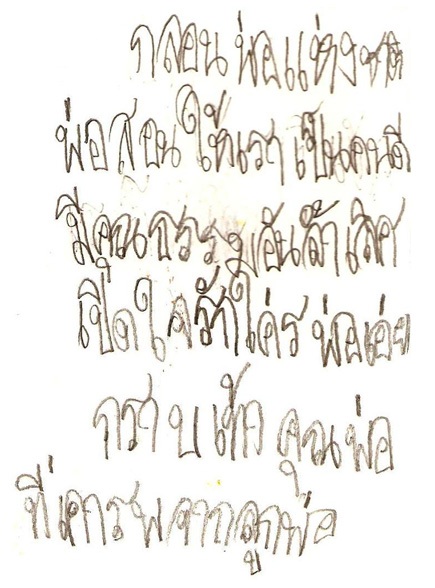 กลอนพ่อแห่งชาติ
พ่อสอนให้เราเป็นคนดี
มีคุณธรรมอันล้ำเลิศ
เปิดใจ พ่อเอ่ย
กราบเท้าคุณพ่อ
ที่เคารพจากลูกพ่อ